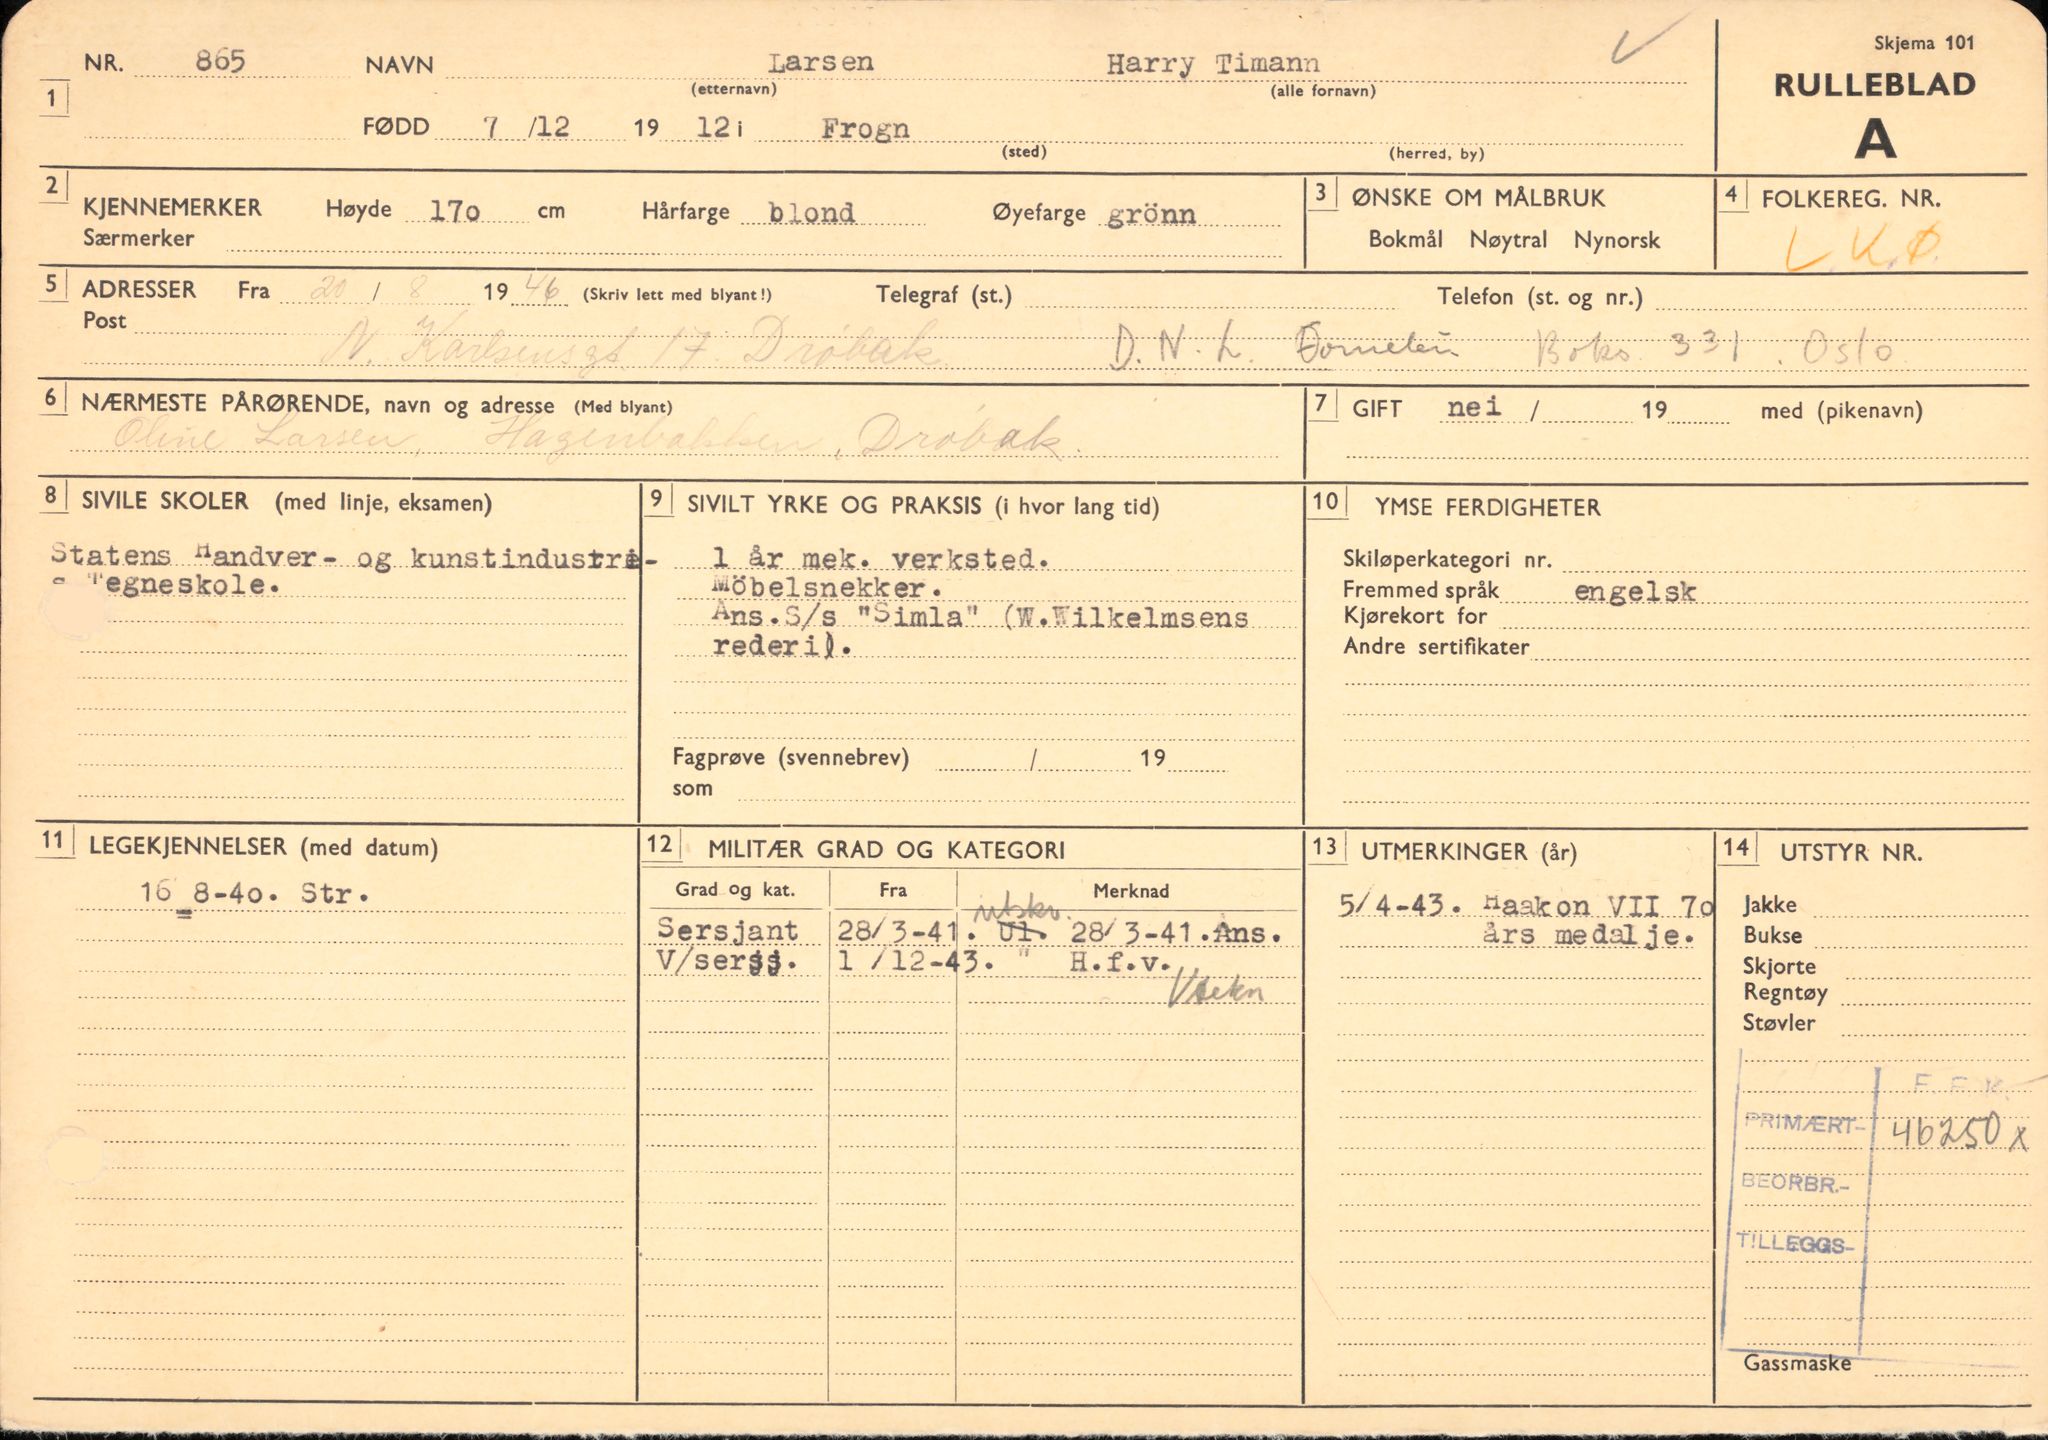 Skjema 101
RULLEBLAD
A
1 NR. 865 NAVN Larsen Harry Timann
(etternavn) (alle fornavn)
FØDD 7 /12 19 12 i Frogn
(sted) (herred, by)
2 KJENNEMERKER Høyde 170 cm Hårfarge blond Øyefarge grönn
Særmerker
3 ØNSKE OM MÅLBRUK
Bokmål Nøytral Nynorsk
4 FOLKEREG. NR.
L.K.Ø.
5 ADRESSER Fra 20 / 8 19 46 (Skriv lett med blyant!) Telegraf (st.) Telefon (st. og nr.)
Post
N. Karlsensgt. 17 Drøbak D. N. L. Boks 331. Oslo
6 NÆRMESTE PÅRØRENDE, navn og adresse (Med blyant)
Oline Larsen, Hagenbakken, Drøbak.
7 GIFT nei / 19 med (pikenavn)
8 SIVILE SKOLER (med linje, eksamen)
Statens Handver- og kunstindustri-
s Tegneskole.
9 SIVILT YRKE OG PRAKSIS (i hvor lang tid)
1 år mek. verksted.
Möbelsnekker.
Ans.S/s "Simla" (W.Wilkelmsens
rederi).
Fagprøve (svennebrev) / 19
som
10 YMSE FERDIGHETER
Skiløperkategori nr.
Fremmed språk engelsk
Kjørekort for
Andre sertifikater
11 LEGEKJENNELSER (med datum)
16-8-40. Str.
12 MILITÆR GRAD OG KATEGORI
Grad og kat. Fra Merknad
utskr.
Sersjant 28/3-41. Ul. 28/3-41.Ans.
V/sersj. 1 /12-43. " H.f.v.
13 UTMERKINGER (år)
5/4-43. Haakon VII 70
års medalje.
14 UTSTYR NR.
Jakke
Bukse
Skjorte
Regntøy
Støvler
F. F. K.
PRIMÆRT- 46250 x
BEORBR.-
TILLEGGS-
Gassmaske